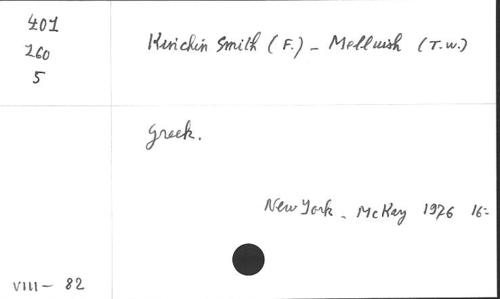 401
260
5
Kinchin Smith (F.) - Melluish (T.W.)
Greek.
New York - McKay 1976 16=
VIII - 82